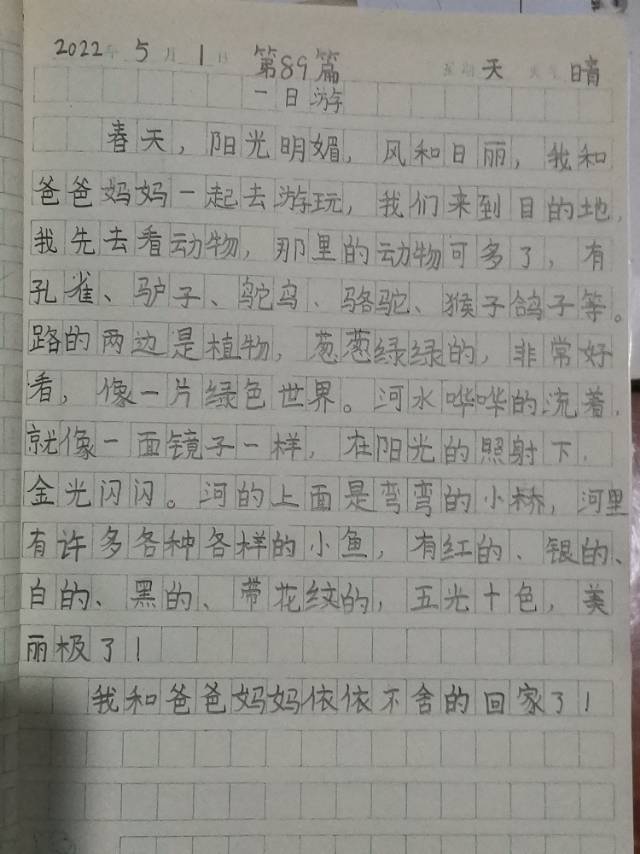 2022年 5月 1日 第89篇 星期 天 天气 晴
一日游
春天，阳光明媚，风和日丽，我和
爸爸妈妈一起去游玩，我们来到目的地，
我先去看动物，那里的动物可多了，有
孔雀、驴子、鸵鸟、骆驼、猴子鸽子等。
路的两边是植物，葱葱绿绿的，非常好
看，像一片绿色世界。河水哗哗的流着，
就像一面镜子一样，在阳光的照射下，
金光闪闪。河的上面是弯弯的小桥，河里
有许多各种各样的小鱼，有红的、银的、
白的、黑的、带花纹的，五光十色，美
丽极了！
我和爸爸妈妈依依不舍的回家了！